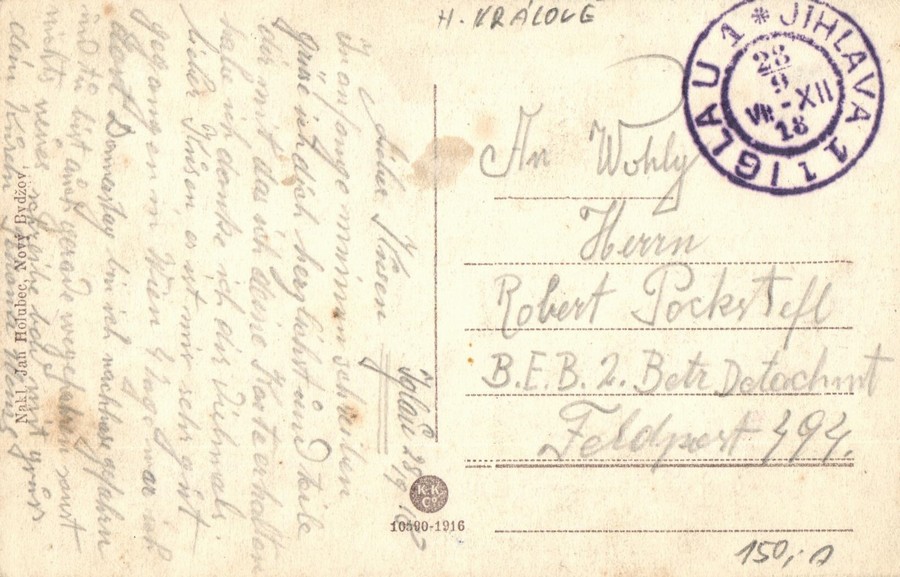 H. KRÁLOVÉ
IGLAU 1 * JIHLAVA 1
28
9
VII-XII
18
An Wohlg
Herrn
Robert Pocksteffl
B.E.B. 2. Betr Detachmt
Feldpost 494.
150,- A
K.K.
Co
10590-1916
Nakl. Jan Holubec, Nový Bydžov
Iglau 28/9
Liebe
Im anfange meines schreiben
grüße ich dich herzlichst und teile
dir mit das ich deine Karte erhalten
habe ich danke ich dir vielmals
es ist mir sehr gut
gegangen in Wien 4 tage war ich
dort Donnerstag bin ich nachhaus gefahrn
und du bist auch gerade weggefahrn sonst
nichts neues
dein